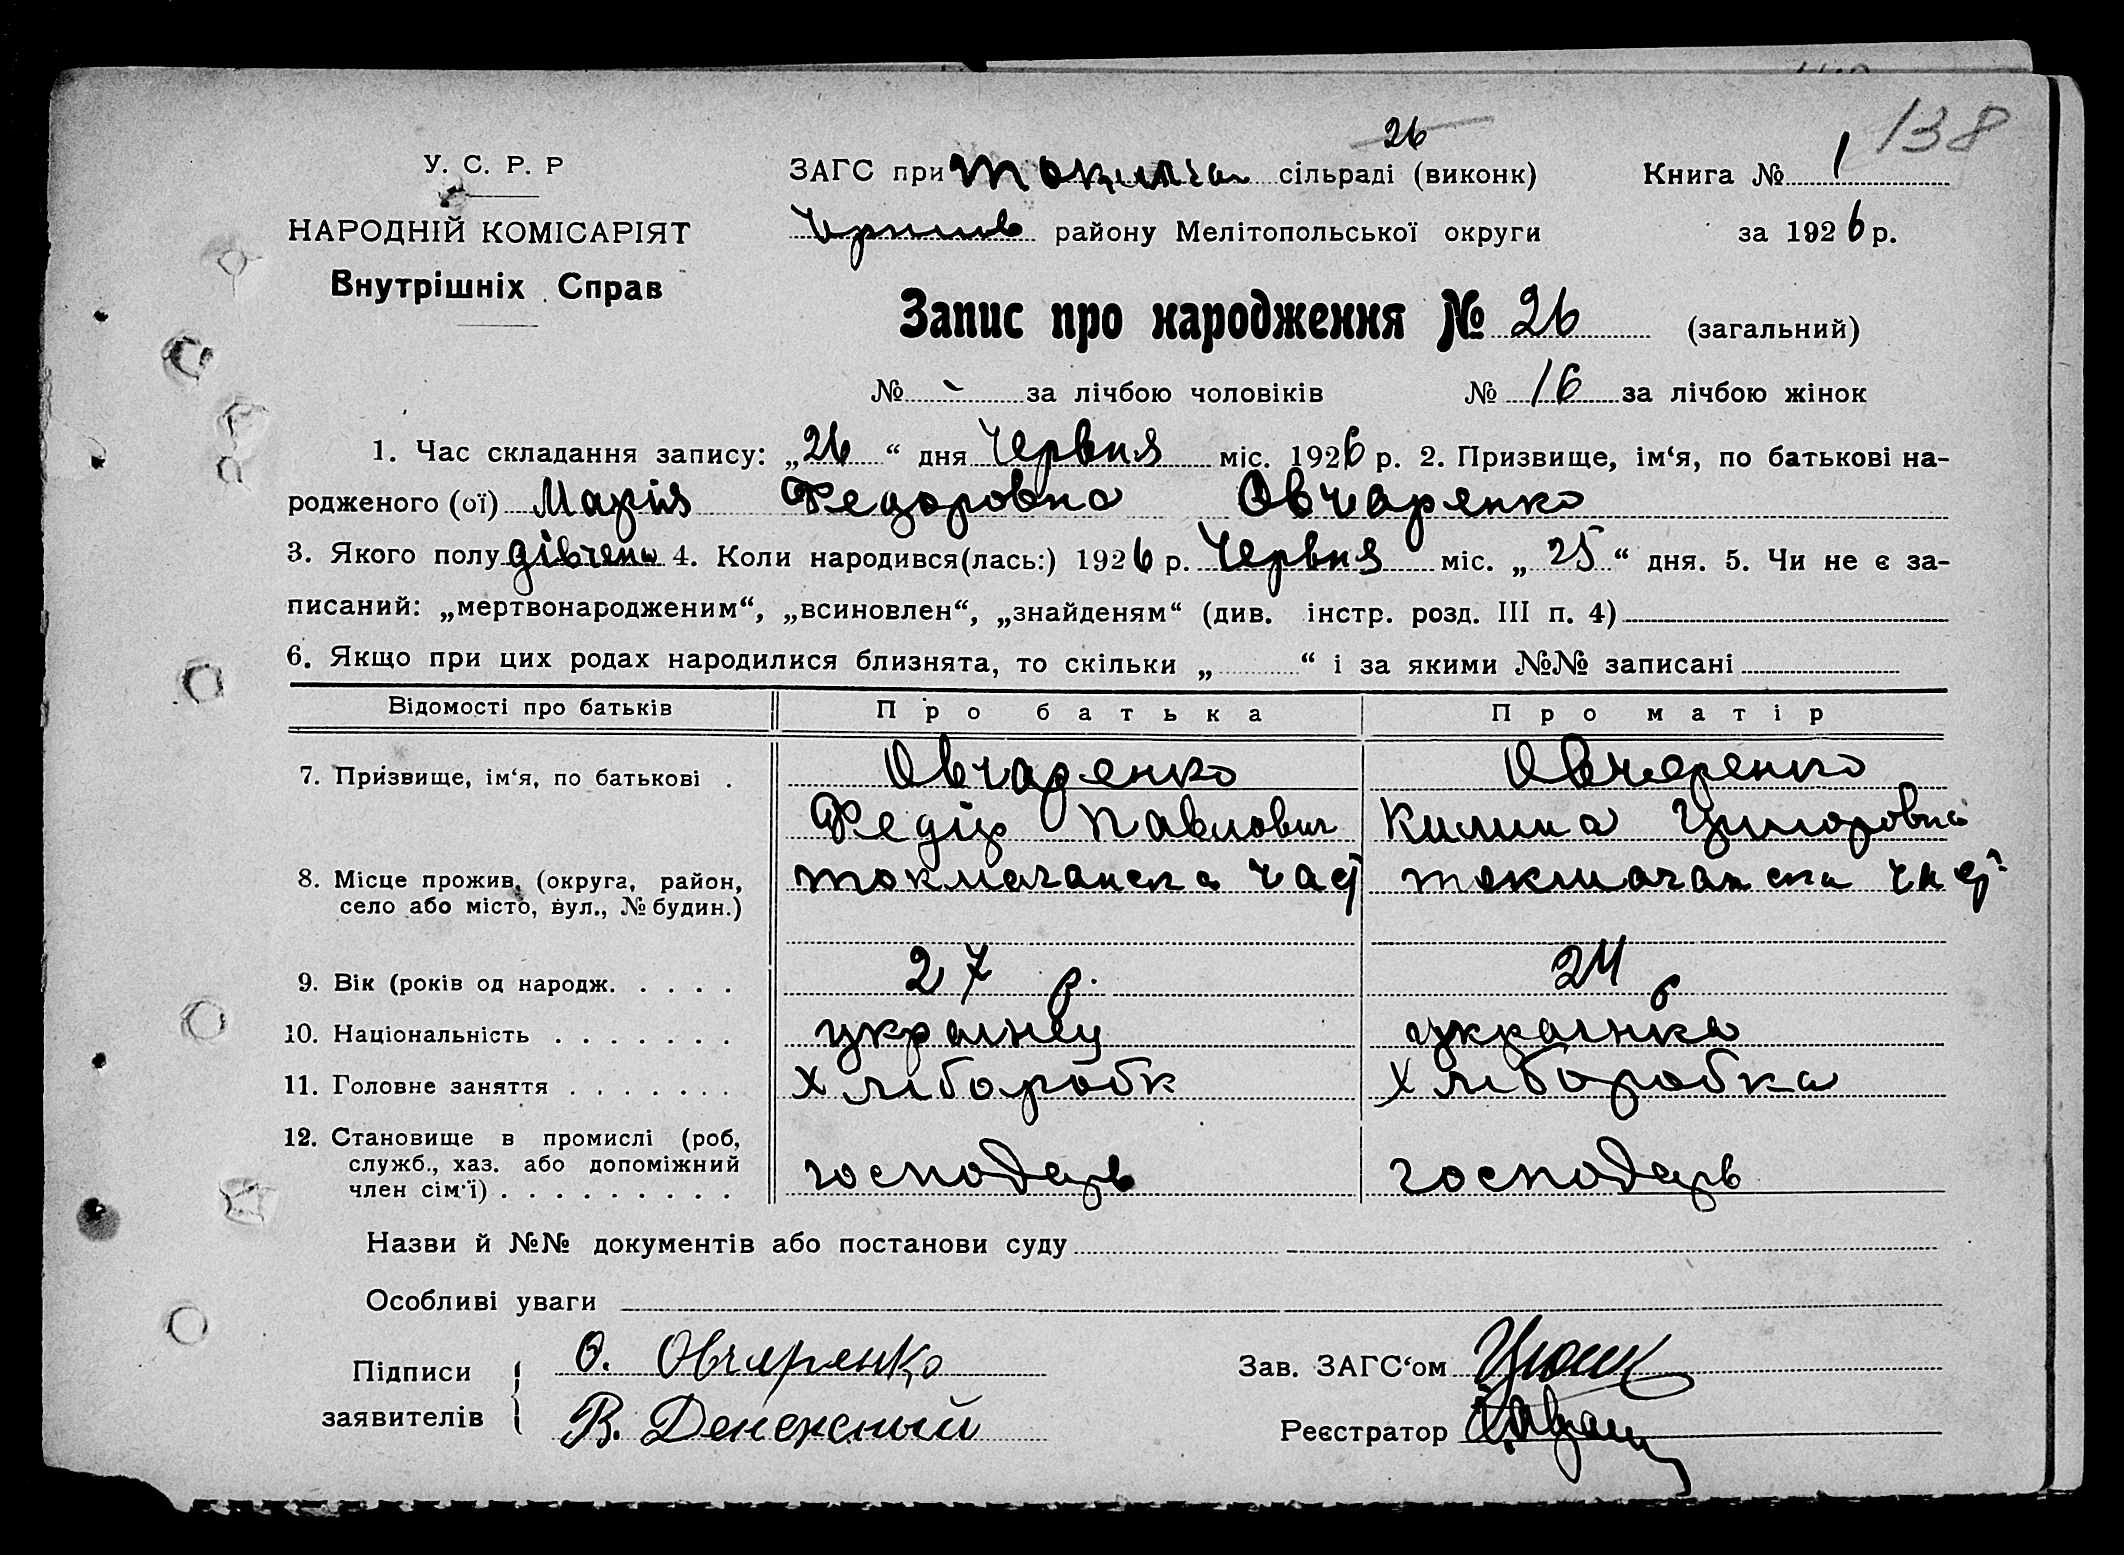 138
26
У. С. Р. Р
ЗАГС при Токмача сільраді (виконк) Книга № 1
НАРОДНІЙ КОМІСАРІЯТ
району Мелітопольської округи за 1926 р.
Внутрішніх Справ
Запис про народження № 26 (загальний)
№ - за лічбою чоловіків № 16 за лічбою жінок
1. Час складання запису: „26“ дня Червня міс. 1926 р. 2. Призвище, ім‘я, по батькові на-
родженого (ої) Марія Федоровна Овчаренко
3. Якого полу дівчена 4. Коли народився(лась:) 1926 р. Червня міс. „25“ дня. 5. Чи не є за-
писаний: „мертвонародженим“, „всиновлен“, „знайденям“ (див. інстр. розд. III п. 4)
6. Якщо при цих родах народилися близнята, то скільки „ “ і за якими №№ записані
Відомості про батьків Про батька Про матір
7. Призвище, ім‘я, по батькові . Овчаренко Овчеренко
Федір Павлович Килина
8. Місце прожив, (округа, район, токмачанска част токмачанска част
село або місто, вул., № будин.)
9. Вік (років од народж. . . . . 27 р. 24 р
10. Національність . . . . . . . українец українка
11. Головне заняття . . . . . . . хліборобк хліборобка
12. Становище в промислі (роб,
служб., хаз. або допоміжний господарь господарь
член сім‘ї) . . . . . . . . . .
Назви й №№ документів або постанови суду
Особливі уваги
Підписи О. Овчяренко Зав. ЗАГС‘ом
заявителів В. Денежный Реєстратор